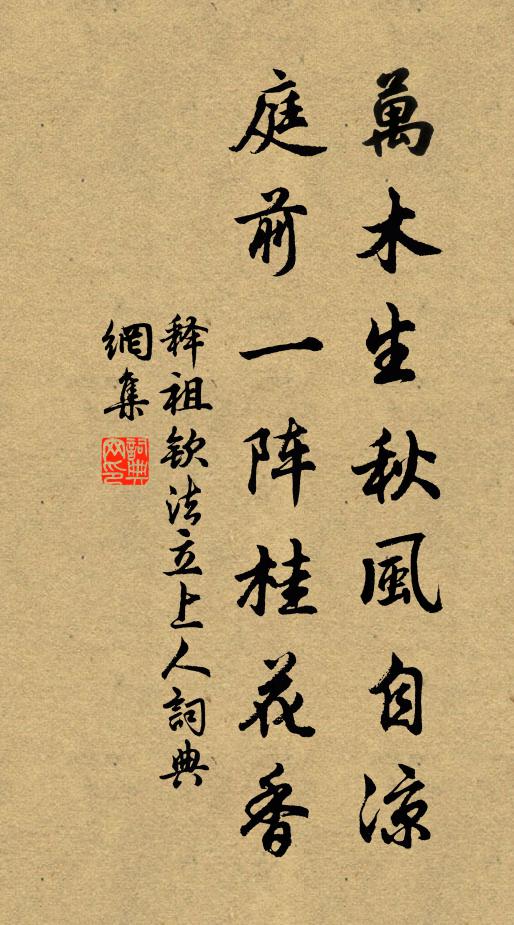 萬木生秋風自涼
庭前一阵桂花香
释祖欽法立上人詞典
網集
詞典
网印